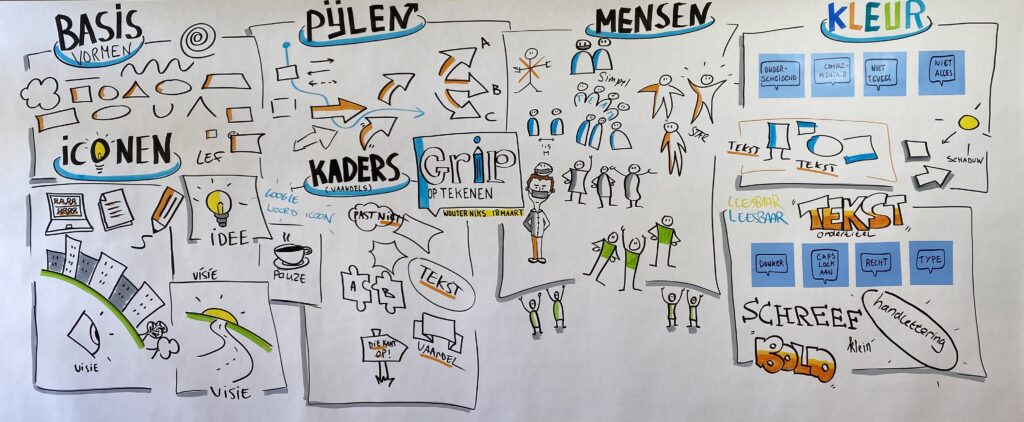 BASIS
VORMEN
LEF
iCONEN
IDEE
VISIE
VISIE
VISIE
PIJLEN
A
B
C
KADERS
(VAANDELS)
GOOGLE
WOORD ICOON
PAUZE
PAST NIET
A
B
TEKST
DIE KANT
OP!
VAANDEL
Grip
OP TEKENEN
WOUTER NIKS 18 MAART
MENSEN
Simpel
1.5
M
STER
KLEUR
ONDER-
SCHEIDEND
COMPLE-
MENTAIR
NIET
TEVEEL
NIET
ALLES
TEKST
TEKST
SCHADUW
LEESBAAR
LEESBAAR
TEKST
ondertitel
DONKER
CAPS
LOCK
AAN
RECHT
TYPE
SCHREEF
handlettering
BOLD
klein